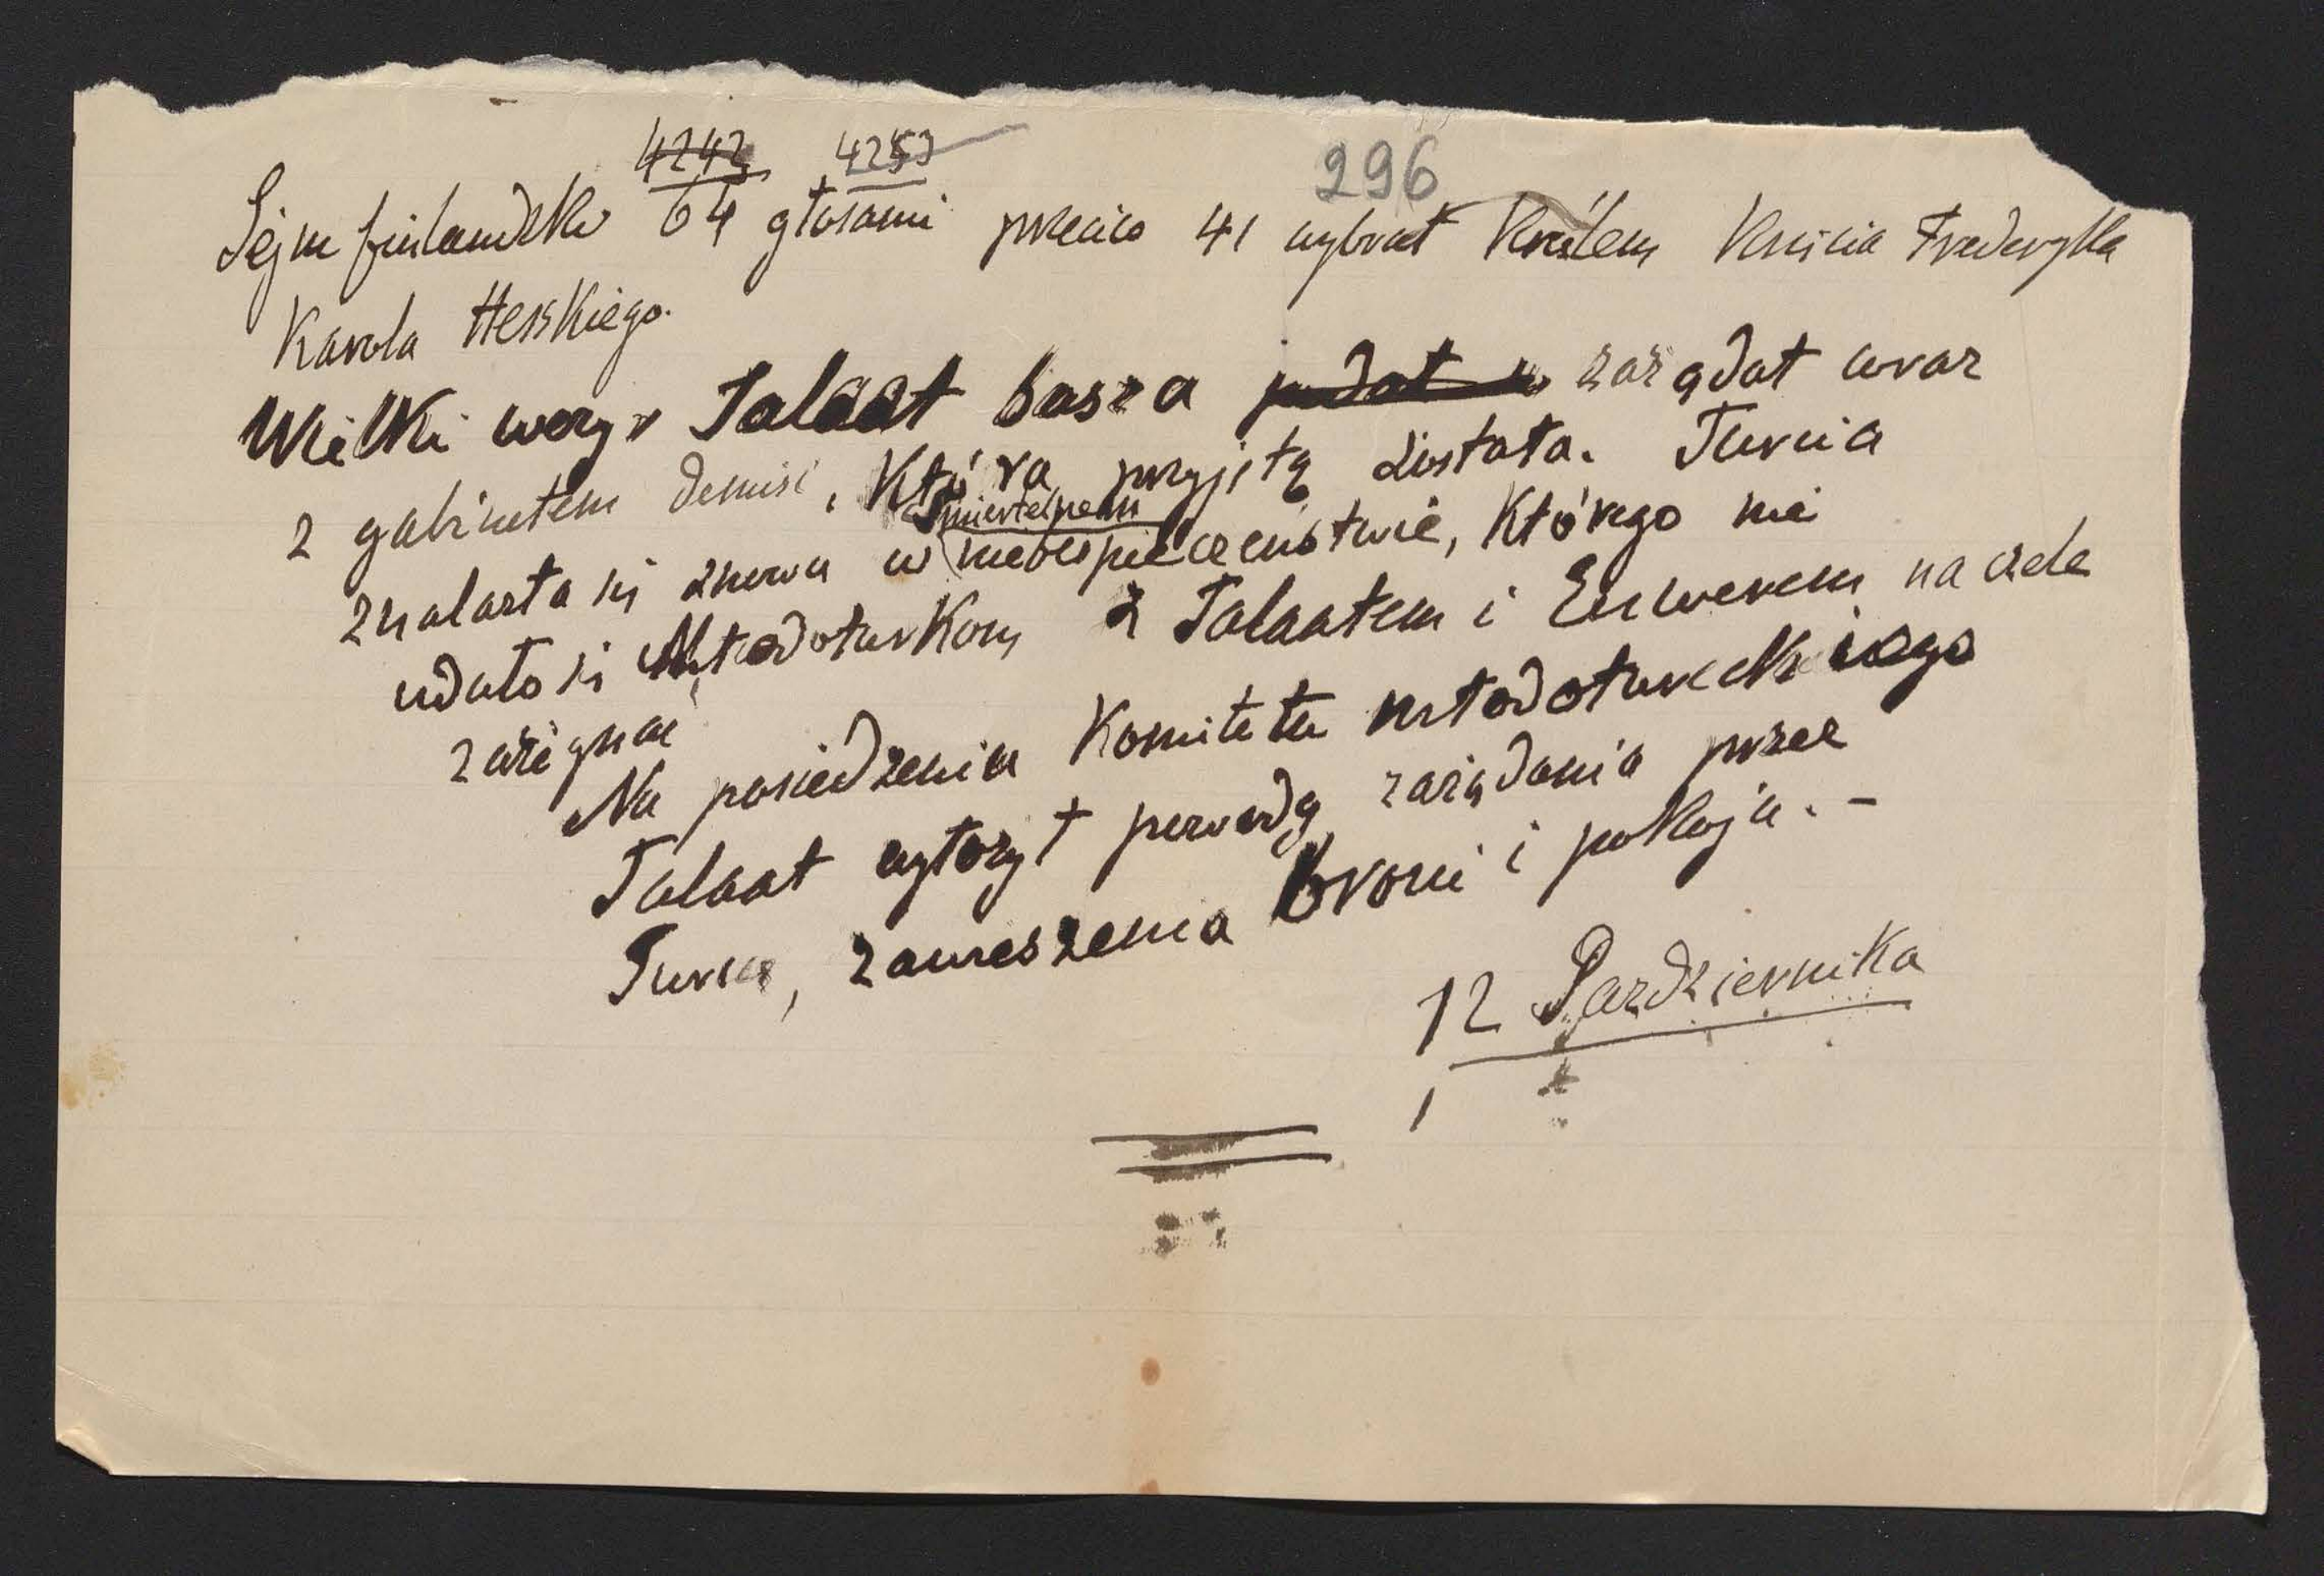 4242 4253 296
Sejm finlandzki 64 głosami przeciw 41 wybrał królem księcia Fryderyka
Karola Heskiego.
Wielki wezyr Talaat basza podał w zażądał wraz
z gabinetem demisi, która przyjętą została. Turcia
śmiertelnem
znalazła się znowu w niebezpieczeństwie, którego nie
udało się Młodoturkom z Talaatem i Enwerem na czele
zażegnać
Na posiedzeniu Komitetu młodotureckiego
Talaat wyłożył powody zażądania przez
Turcię, zawieszenia broni i pokoju. -
12 Pazdziernika